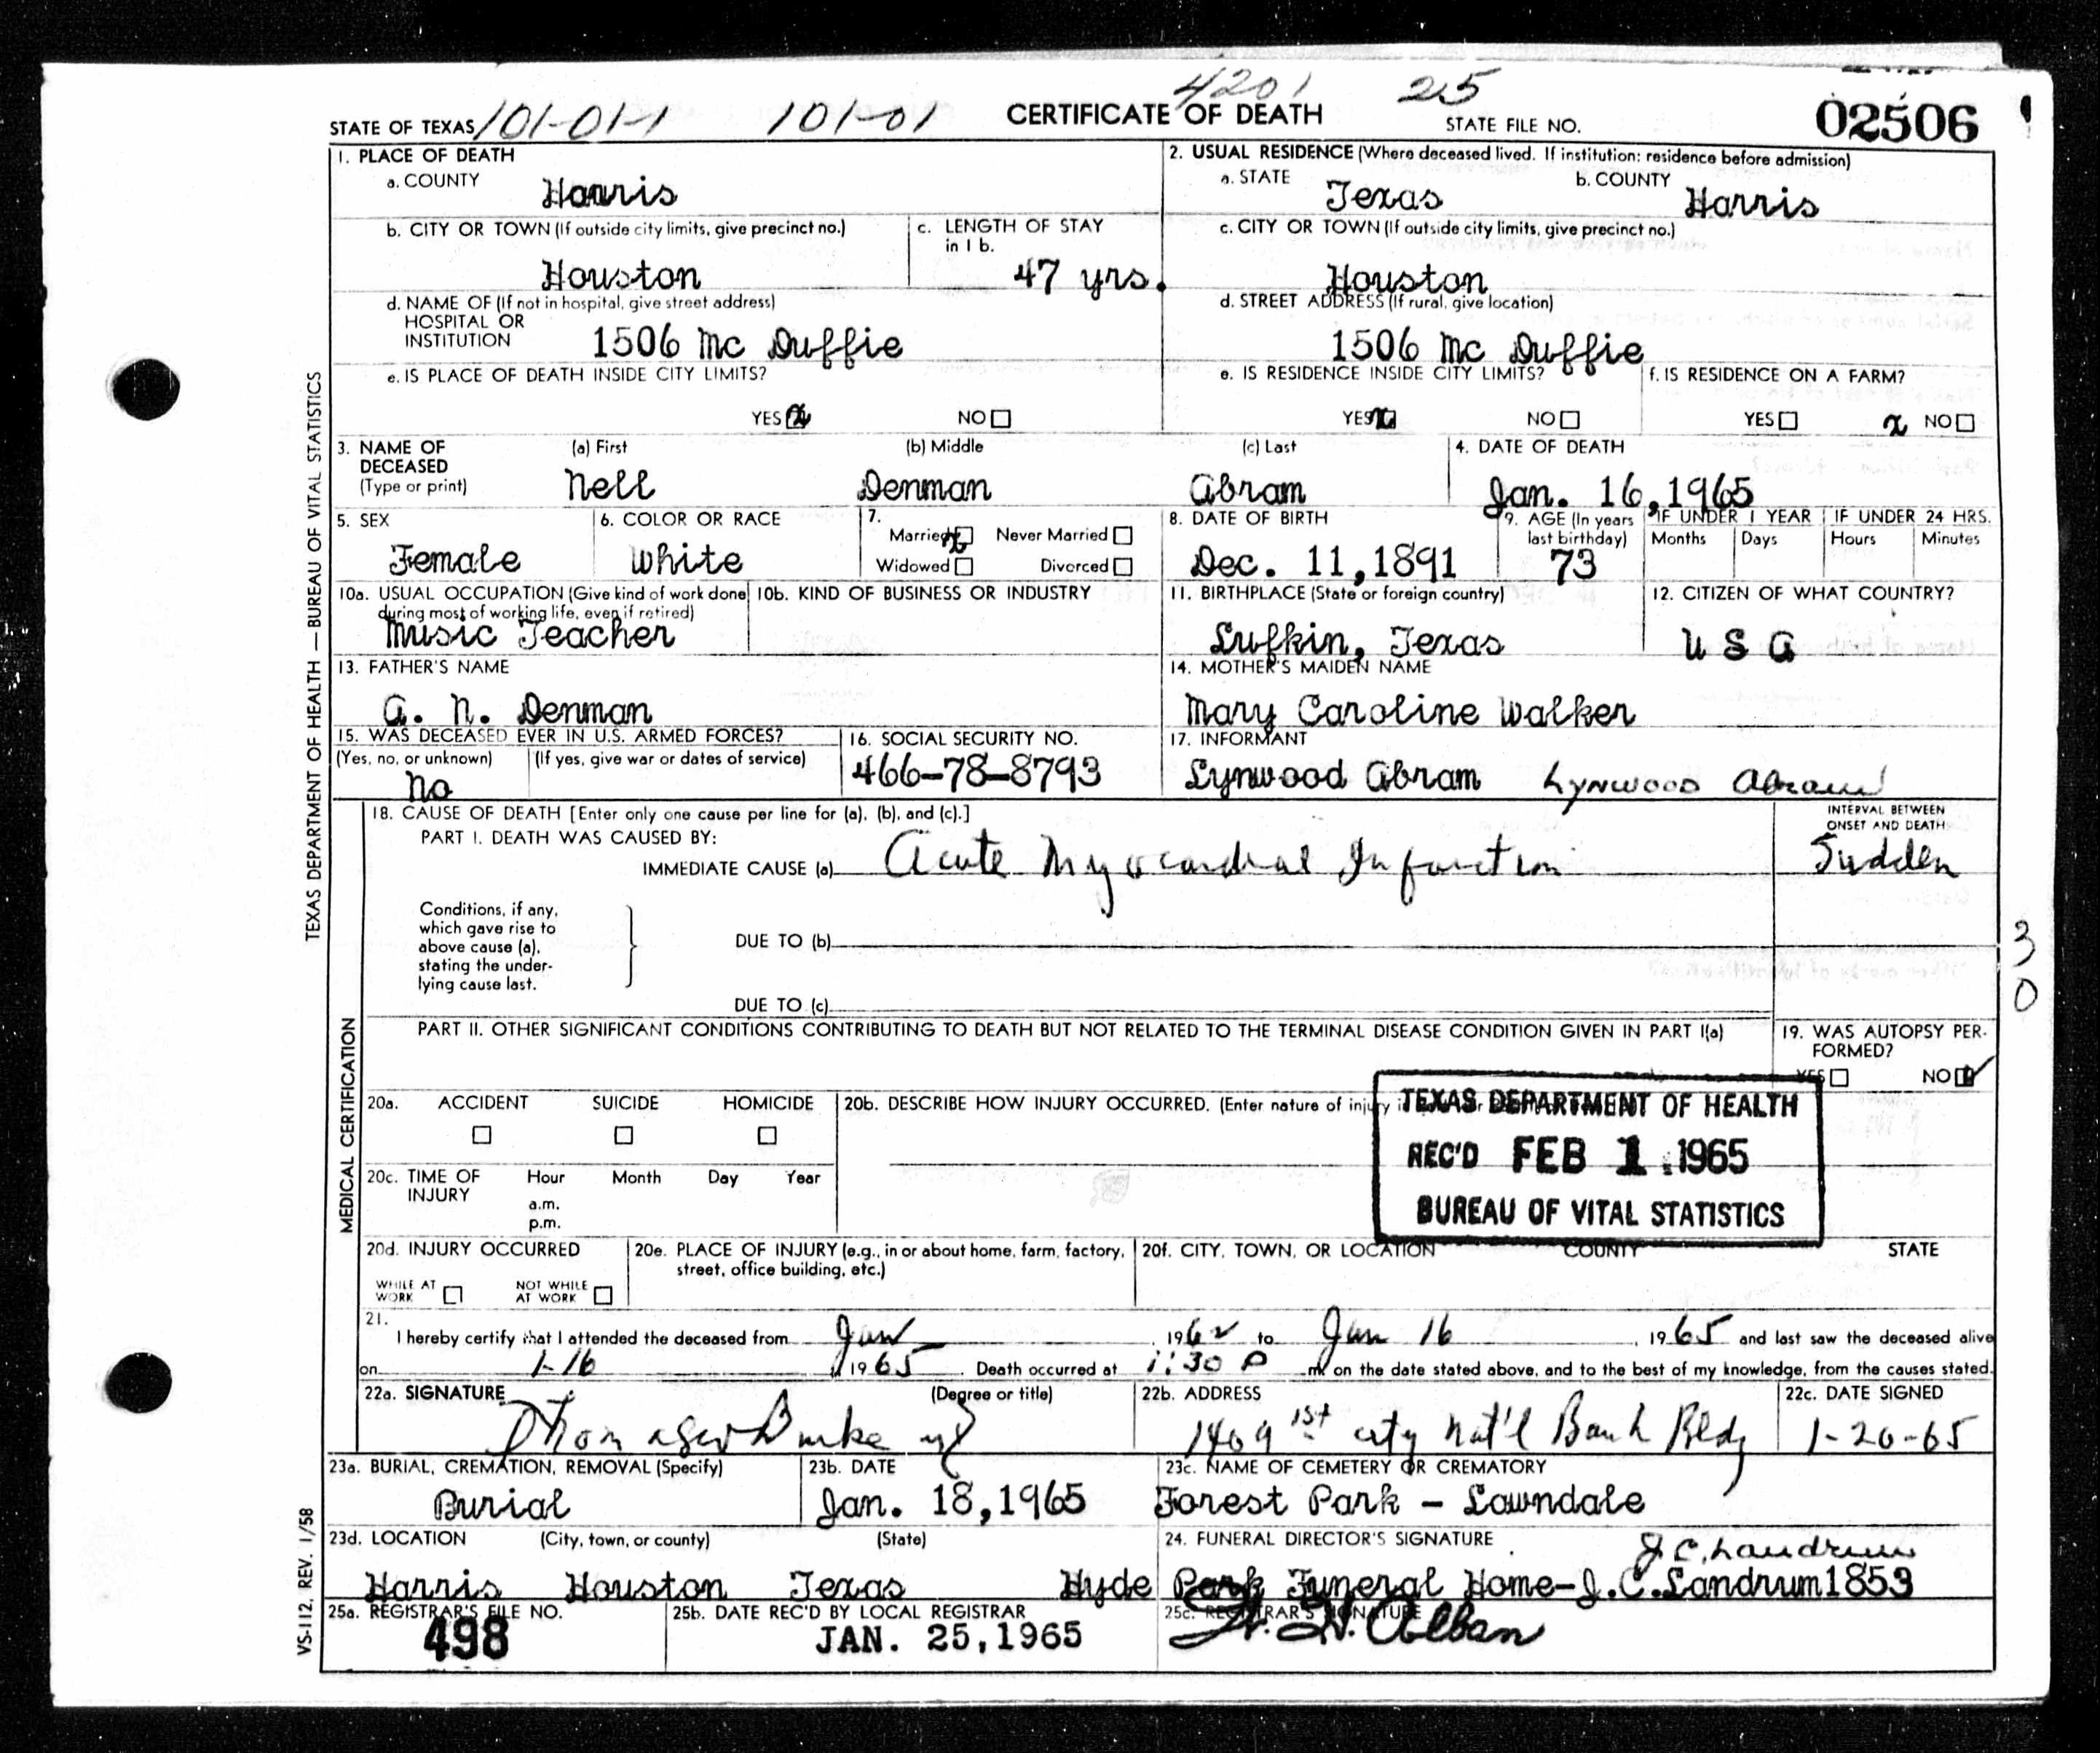 4201 25
STATE OF TEXAS 101-01-1 101-01 CERTIFICATE OF DEATH STATE FILE NO. 02506
1. PLACE OF DEATH
a. COUNTY Harris
2. USUAL RESIDENCE (Where deceased lived. If institution: residence before admission)
a. STATE Texas b. COUNTY Harris
b. CITY OR TOWN (If outside city limits, give precinct no.) Houston
c. LENGTH OF STAY in 1 b. 47 yrs.
c. CITY OR TOWN (If outside city limits, give precinct no.) Houston
d. NAME OF (If not in hospital, give street address)
HOSPITAL OR
INSTITUTION 1506 Mc Duffie
d. STREET ADDRESS (If rural, give location)
1506 Mc Duffie
e. IS PLACE OF DEATH INSIDE CITY LIMITS?
YES x NO
e. IS RESIDENCE INSIDE CITY LIMITS?
YES x NO
f. IS RESIDENCE ON A FARM?
YES x NO
3. NAME OF DECEASED (Type or print)
(a) First Nell (b) Middle Denman (c) Last Abram
4. DATE OF DEATH Jan. 16, 1965
5. SEX Female
6. COLOR OR RACE White
7. Married x Never Married
Widowed Divorced
8. DATE OF BIRTH Dec. 11, 1891
9. AGE (In years last birthday) 73
IF UNDER 1 YEAR Months Days
IF UNDER 24 HRS. Hours Minutes
10a. USUAL OCCUPATION (Give kind of work done during most of working life, even if retired)
Music Teacher
10b. KIND OF BUSINESS OR INDUSTRY
11. BIRTHPLACE (State or foreign country) Lufkin, Texas
12. CITIZEN OF WHAT COUNTRY? U S A
13. FATHER'S NAME A. N. Denman
14. MOTHER'S MAIDEN NAME Mary Caroline Walker
15. WAS DECEASED EVER IN U.S. ARMED FORCES?
(Yes, no, or unknown) No (If yes, give war or dates of service)
16. SOCIAL SECURITY NO. 466-78-8793
17. INFORMANT Lynwood Abram Lynwood Abram
18. CAUSE OF DEATH [Enter only one cause per line for (a), (b), and (c).]
INTERVAL BETWEEN ONSET AND DEATH
PART I. DEATH WAS CAUSED BY:
IMMEDIATE CAUSE (a) Acute Myocardial Infarction Sudden
Conditions, if any,
which gave rise to
above cause (a),
stating the under-
lying cause last.
DUE TO (b)
DUE TO (c)
3
0
PART II. OTHER SIGNIFICANT CONDITIONS CONTRIBUTING TO DEATH BUT NOT RELATED TO THE TERMINAL DISEASE CONDITION GIVEN IN PART I(a)
19. WAS AUTOPSY PER-
FORMED?
YES NO
20a. ACCIDENT SUICIDE HOMICIDE
20b. DESCRIBE HOW INJURY OCCURRED. (Enter nature of injury
TEXAS DEPARTMENT OF HEALTH
REC'D FEB 1 1965
BUREAU OF VITAL STATISTICS
20c. TIME OF INJURY Hour Month Day Year
a.m.
p.m.
20d. INJURY OCCURRED
WHILE AT WORK NOT WHILE AT WORK
20e. PLACE OF INJURY (e.g., in or about home, farm, factory, street, office building, etc.)
20f. CITY, TOWN, OR LOCATION COUNTY STATE
21.
I hereby certify that I attended the deceased from Jan, 1962 to Jan 16, 1965 and last saw the deceased alive
on 1-16 1965. Death occurred at 1:30 P m on the date stated above, and to the best of my knowledge, from the causes stated.
22a. SIGNATURE (Degree or title)
22b. ADDRESS 1409 1st city Nat'l Bank Bldg
22c. DATE SIGNED 1-20-65
23a. BURIAL, CREMATION, REMOVAL (Specify) Burial
23b. DATE Jan. 18, 1965
23c. NAME OF CEMETERY OR CREMATORY Forest Park - Lawndale
23d. LOCATION (City, town, or county) (State)
Harris Houston Texas
24. FUNERAL DIRECTOR'S SIGNATURE J. C. Landrum
Hyde Park Funeral Home-J.C.Landrum 1853
25a. REGISTRAR'S FILE NO. 498
25b. DATE REC'D BY LOCAL REGISTRAR JAN. 25, 1965
25c. REGISTRAR'S SIGNATURE H. Alban
TEXAS DEPARTMENT OF HEALTH — BUREAU OF VITAL STATISTICS
MEDICAL CERTIFICATION
VS-112, REV. 1/58